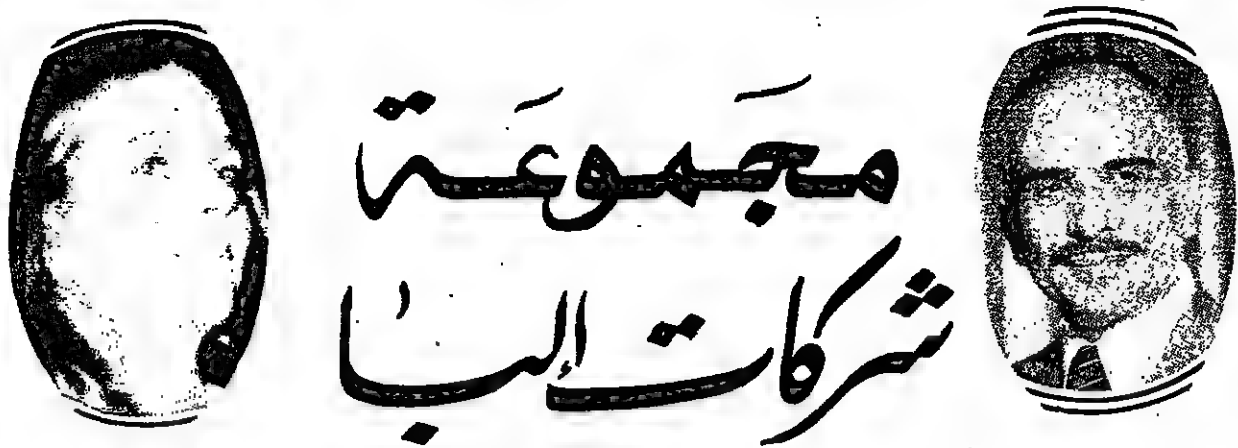 مجموعة
شركات إلبا